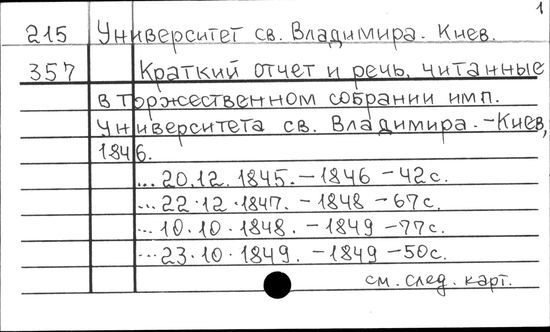 1
215 Университет св. Владимира. Киев.
357 Краткий отчет и речь, читанные
в торжественном собрании имп.
Университета св. Владимира. – Киев,
1846.
... 20.12.1845. – 1846 – 42с.
... 22.12.1847. – 1848 – 67с.
... 10.10.1848. – 1849 – 77с.
... 23.10.1849. – 1849 – 50с.
см. след. карт.